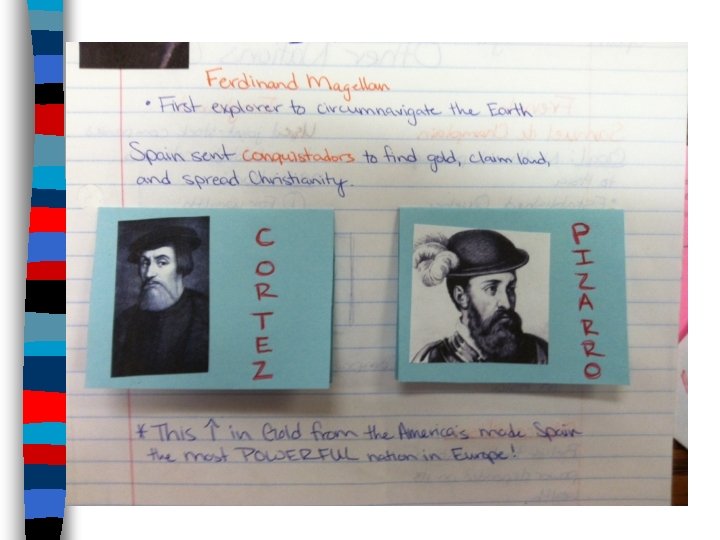 Ferdinand Magellan
• First explorer to circumnavigate the Earth
Spain sent conquistadors to find gold, claim land,
and spread Christianity.
CORTEZ
PIZARRO
* This ↑ in Gold from the America's made Spain
the most POWERFUL nation in Europe!